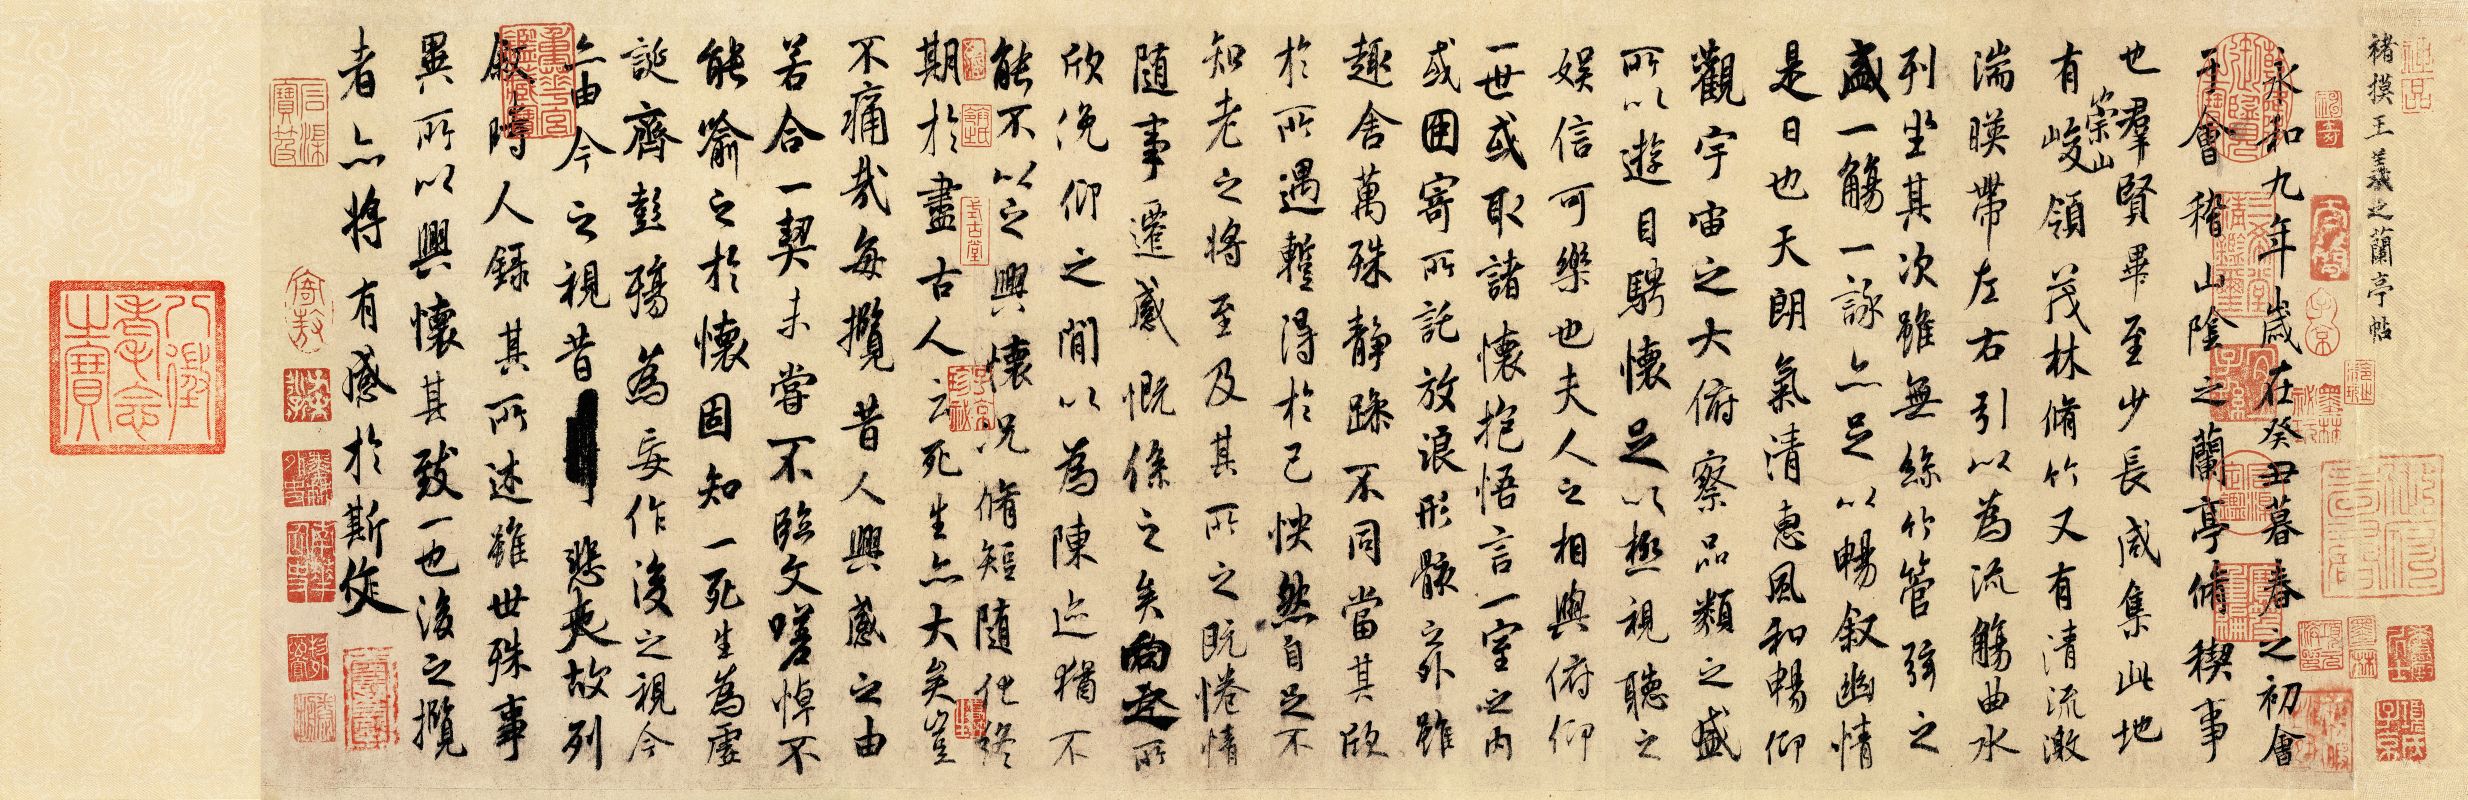 褚摸王羲之蘭亭帖
永和九年歲在癸丑暮春之初會
于會稽山陰之蘭亭脩稧事
也羣賢畢至少長咸集此地
有崇山峻領茂林脩竹又有清流激
湍暎帶左右引以為流觴曲水
列坐其次雖無絲竹管弦之
盛一觴一詠亦足以暢敘幽情
是日也天朗氣清惠風和暢仰
觀宇宙之大俯察品類之盛
所以遊目騁懷足以極視聽之
娛信可樂也夫人之相與俯仰
一世或取諸懷抱悟言一室之內
或因寄所託放浪形骸之外雖
趣舍萬殊靜躁不同當其欣
於所遇蹔得於己怏然自足不
知老之將至及其所之既惓情
隨事遷感慨係之矣向之所
欣俛仰之間以為陳迹猶不
能不以之興懷況脩短隨化終
期於盡古人云死生亦大矣豈
不痛哉每攬昔人興感之由
若合一契未嘗不臨文嗟悼不
能喻之於懷固知一死生為虛
誕齊彭殤為妄作後之視今
亦由今之視昔悲夫故列
敘時人錄其所述雖世殊事
異所以興懷其致一也後之攬
者亦將有感於斯文
式古堂
八徵耄念之寶